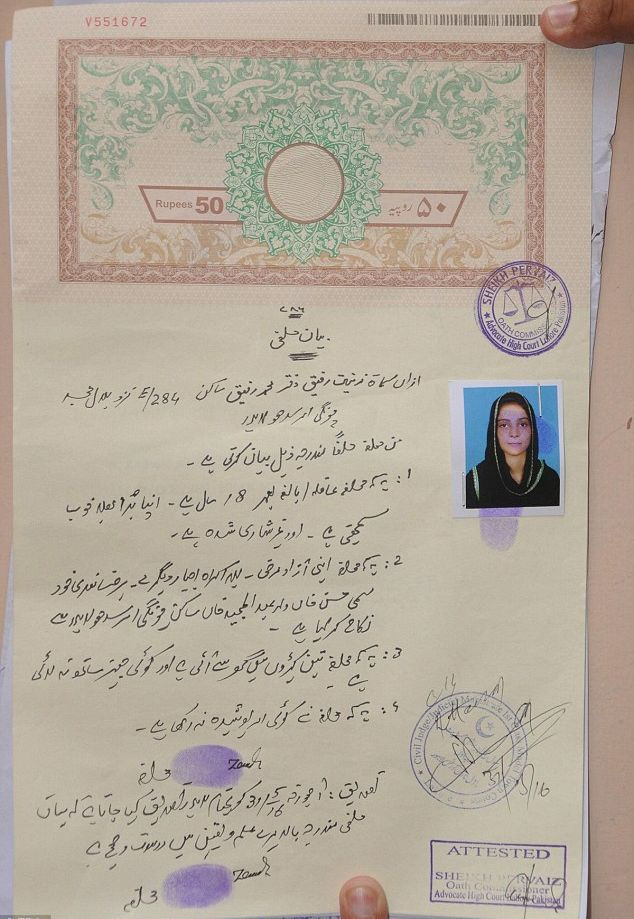 V551672
Rupees 50
۵۰ روپیہ
SHEIKH PERVAIZ
OATH COMMISSIONER
Advocate High Court Lahore Pakistan
۷۸۶
بیان حلفی
ازاں مسماۃ زینت رفیق دختر محمد رفیق ساکن 284/E نزد
چونگی امرسدھو لاہور
من حلفہ حلفاً مندرجہ ذیل بیان کرتی ہے۔
1: یہ کہ محلفہ عاقلہ / بالغہ بعمر 18 سال ہے۔ اپنا برا بھلا خوب
سمجھتی ہے۔ اور غیر شادی شدہ ہے۔
2: یہ کہ محلفہ اپنی آزاد مرضی۔ بلا اکراہ اجبار دیگرے۔ برضا مندی خود
مسمی حسن خاں ولد عبدالمجید خاں ساکن چونگی امرسدھو لاہور سے
نکاح کر لیا ہے۔
3: یہ کہ محلفہ تین کپڑوں میں گھر سے آئی ہے اور کوئی چیز ساتھ نہ لائی
ہے
4: یہ کہ محلفہ نے کوئی امر پوشیدہ نہ رکھا ہے۔
محلفہ
Zeenat
تصدیق: آج مورخہ 31/5/16 کو بمقام لاہور تصدیق کیا جاتا ہے کہ بیان
حلفی مندرجہ بالا میرے علم و یقین میں درست و صحیح ہے
محلفہ
Zeenat
Civil Judge/Judicial Magistrate
31/5/16
ATTESTED
SHEIKH PERVAIZ
Oath Commissioner
Advocate High Court Lahore Pakistan